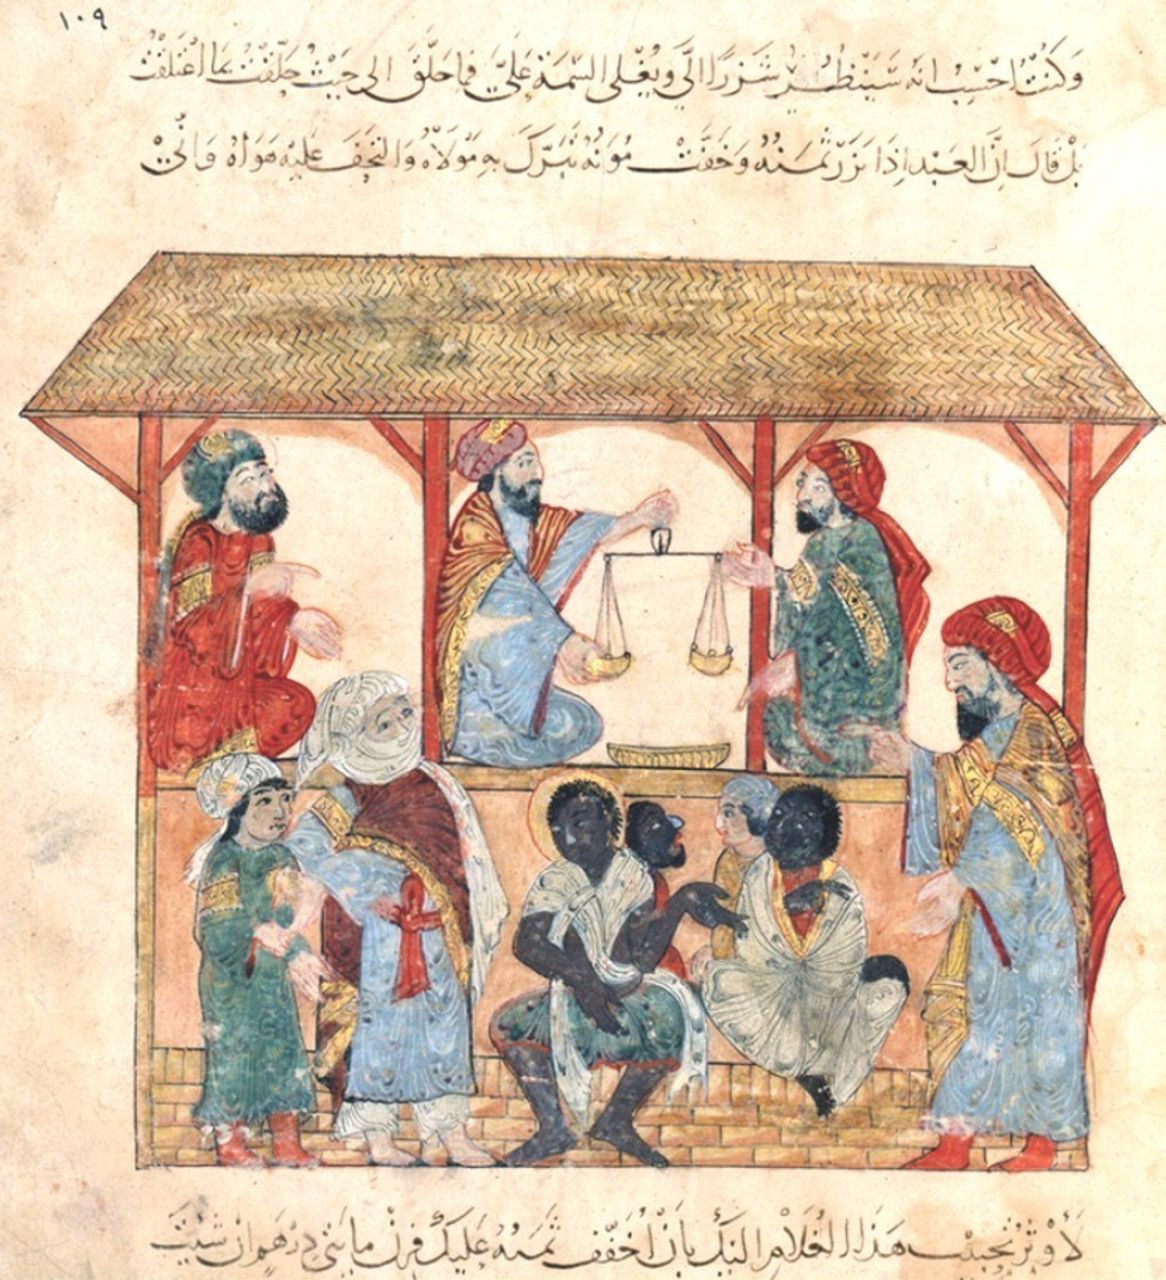 ١٠٩
وَكُنْتُ احْسِبُ انه سَيَنْظُرُ شَزَرًا الَيَّ ويُغْلي السِّمَةَ عَلَيَّ فما حَلَّقَ الى حَيْثُ حَلَّقْتُ اعْتَلَقْتُ
بَلْ قَالَ إِنَّ العَبْد اِذَا نَزَرَ ثَمَنُهُ وَخَفَّتْ مُوَنُهُ تَبَرَّكَ بِهِ مَوْلَاهُ وَالتَحَفَ عَلَيْهِ هَوَاهُ وَاِنّي
لَأُوثِرُ تَحْبِيبَ هَذَا الغُلَامِ اِلَيْكَ بِاَنْ اُخَفِّفَ ثَمَنَهُ عَلَيْكَ فَزِنْ مايتَيْ دِرْهَمٍ اِنْ شِئْتَ